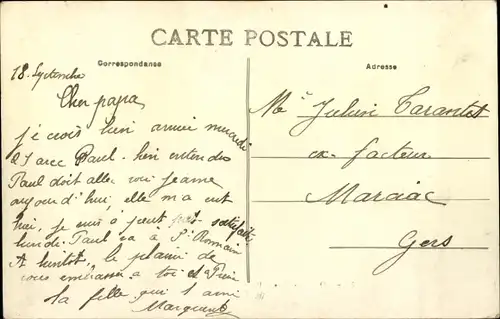 CARTE POSTALE
Correspondanse
Adresse
18 Septembre
Cher papa
je crois bien arriver mercredi
avec Paul. bien entendu
Paul doit aller voir Jeanne
aujourd'hui, elle m'a ecrit
hier, je suis à peut satisfaite
lundi Paul va à St Romain
A bientôt, le plaisir de
vous embrasser a toi et
ta fille qui t'aime
Marguerite
Mr Julien Tarantet
ex facteur
Marciac
Gers